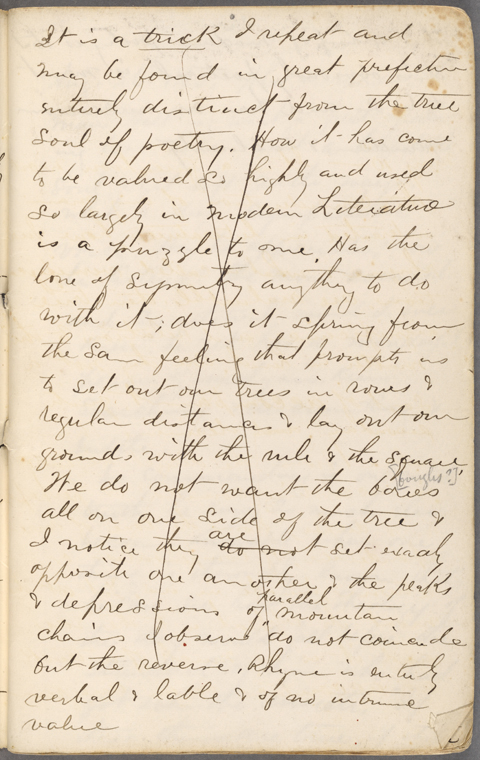 It is a trick I repeat and
may be found in great prefection
entirely distinct from the true
soul of poetry. How it has come
to be valued so highly and used
so largely in modern Literature
is a puzzle to me. Has the
love of Symmetry anything to do
with it; does it spring from
the same feeling that prompts us
to set out our trees in rows &
regular distances & lay out our
grounds with the rule & the square.
[boughs?]
We do not want the
all on one side of the tree &
I notice they are do not set exactly
opposite one another & the peaks
parallel
& depressions of mountain
chains I observe do not coincide
but the reverse. Rhyme is entirely
verbal & lable & of no intrinsic
value